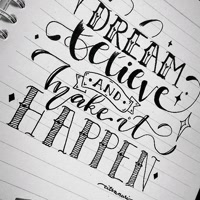 DREAM
believe
AND
make it
HAPPEN